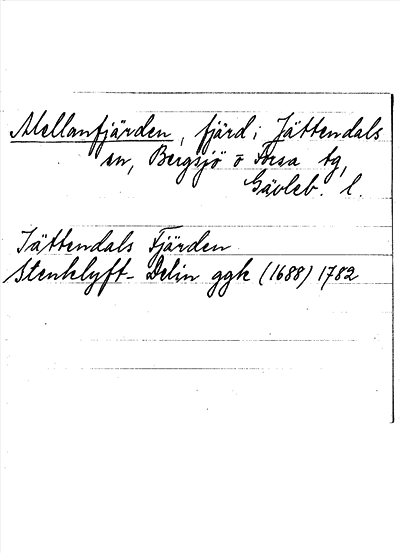 Mellanfjärden, fjärd i Jättendals
sn, Bergsjö o Forsa tg,
Gävleb. l.
Jättendals Fjärden
Stenklyft-Delin ggk (1688) 1782